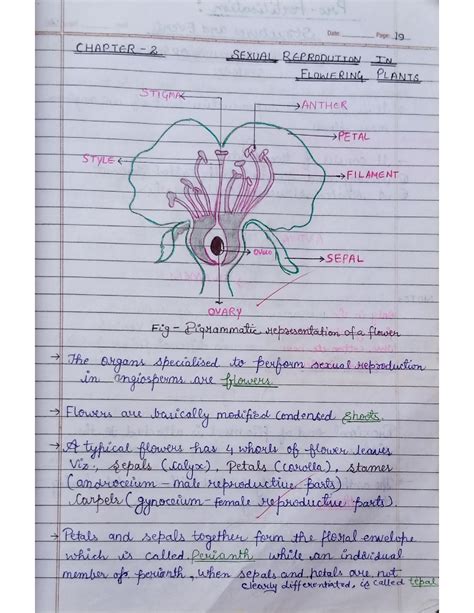 Date: Page: 19
CHAPTER - 2 SEXUAL REPRODUTION IN
FLOWERING PLANTS
STIGMA
ANTHER
PETAL
STYLE
FILAMENT
OVULE
SEPAL
OVARY
Fig - Digrammatic representation of a flower
→ The organs specialised to perform sexual reproduction
in angiosperms are flowers.
→ Flowers are basically modified condensed shoots.
→ A typical flowers has 4 whorls of flower leaves
Viz., Sepals (calyx), Petals (corolla), stamen
(androceium - male reproductive parts)
Carpels (gynoceium - female reproductive parts).
→ Petals and sepals together form the floral envelope
which is called perianth while an individual
member of perianth, when sepals and petals are not
clearly differentiated, is called tepal